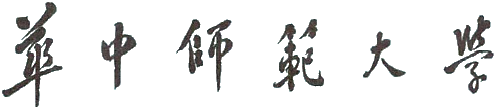 華中師範大學